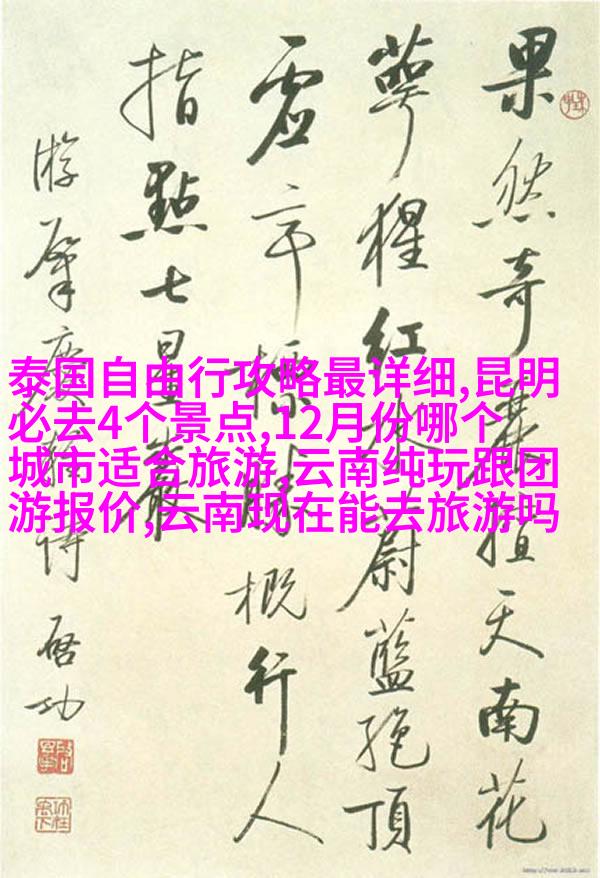 果然奇麗擅天南花
萼猩紅林蔚藍絕頂
虛亭標勝概行人
指點七星巖
游肇慶雜詩 啓功
泰国自由行攻略最详细,昆明
必去4个景点,12月份哪个
城市适合旅游,云南纯玩跟团
游报价,云南现在能去旅游吗